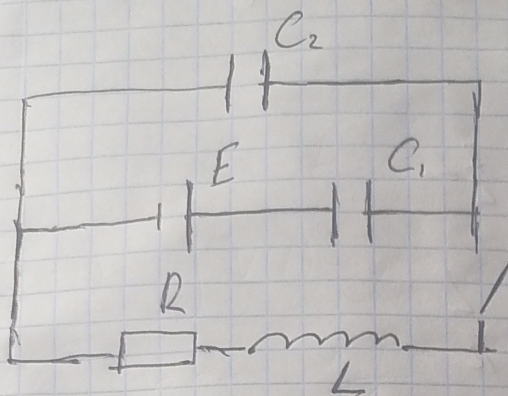 C₂
E
C₁
R
L